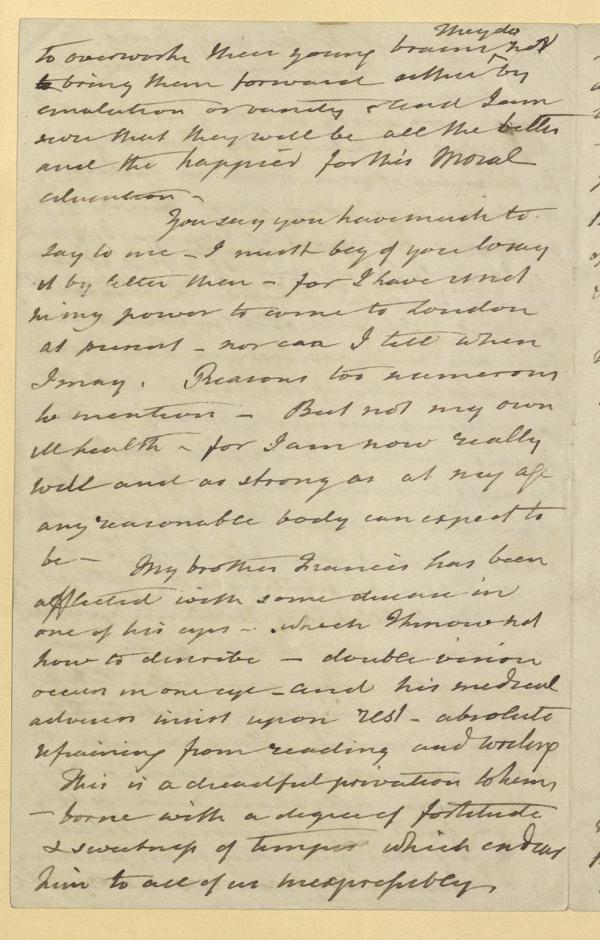 they do
to overwork their young brains not
to bring them forward either by
emulation or vanity & and I am
sure that they will be all the better
and the happier for this Moral
education –
You say you have much to
say to me – I must beg of you to say
it by letter then – for I have it not
in my power to come to London
at present – nor can I tell when
I may. Reasons too numerous
to mention – But not my own
ill health – for I am now really
well and as strong as at my age
any reasonable body can expect to
be – My brother Francis has been
afflicted with some disease in
one of his eyes – which I know not
how to describe – double vision
occurs in one eye – and his medical
advisers insist upon rest – absolute
refraining from reading and writing
This is a dreadful privation to him
– borne with a degree of fortitude
& sweetness of temper which endears
him to all of us inexpressibly.